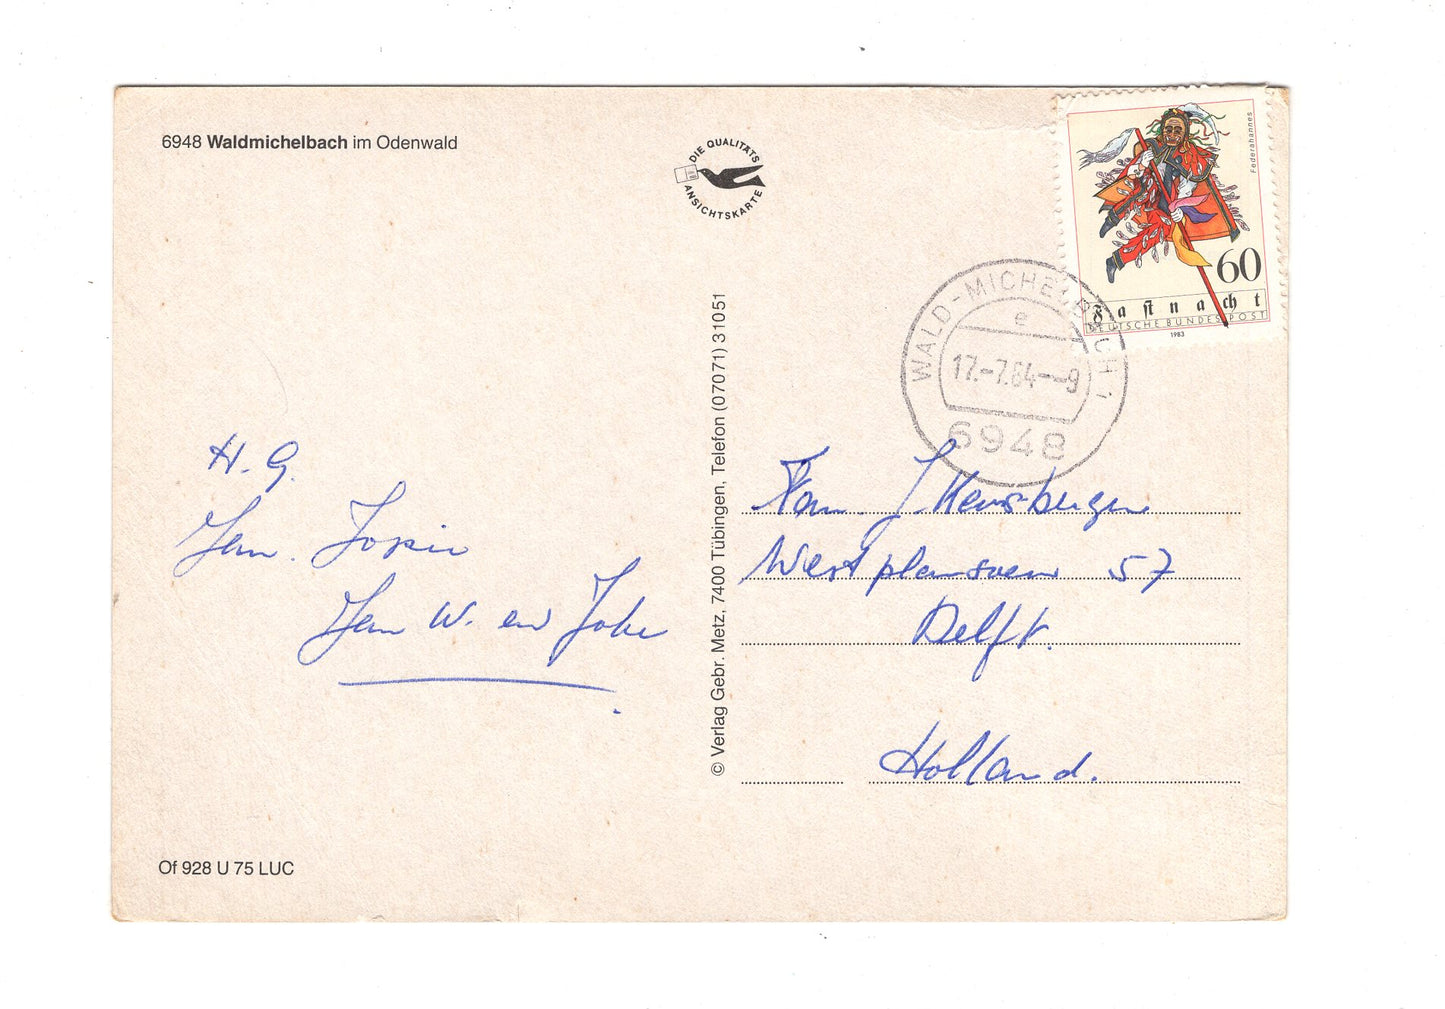 6948 Waldmichelbach im Odenwald
DIE QUALITÄTS
ANSICHTSKARTE
Federahannes
60
Fastnacht
DEUTSCHE BUNDESPOST
1983
WALD-MICHELBACH 1
e
17.-7.84--9
6948
H. G.
Fam.
Fam W. en Joke
Fam. J.
57
Delft.
Holland.
© Verlag Gebr. Metz, 7400 Tübingen, Telefon (07071) 31051
Of 928 U 75 LUC